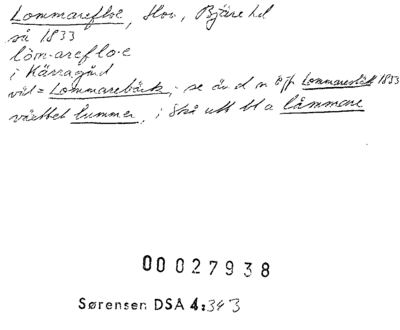 Lommarefloe, Hov, Bjäre hd
så 1833
lòm·areflo·e
i Kärragård
vid = Lommarebäck; se äv d n o/p Lommareslätt 1833
växtet lummer, i Skå utt bl a låmmare
00027938
Sørensen DSA 4:343